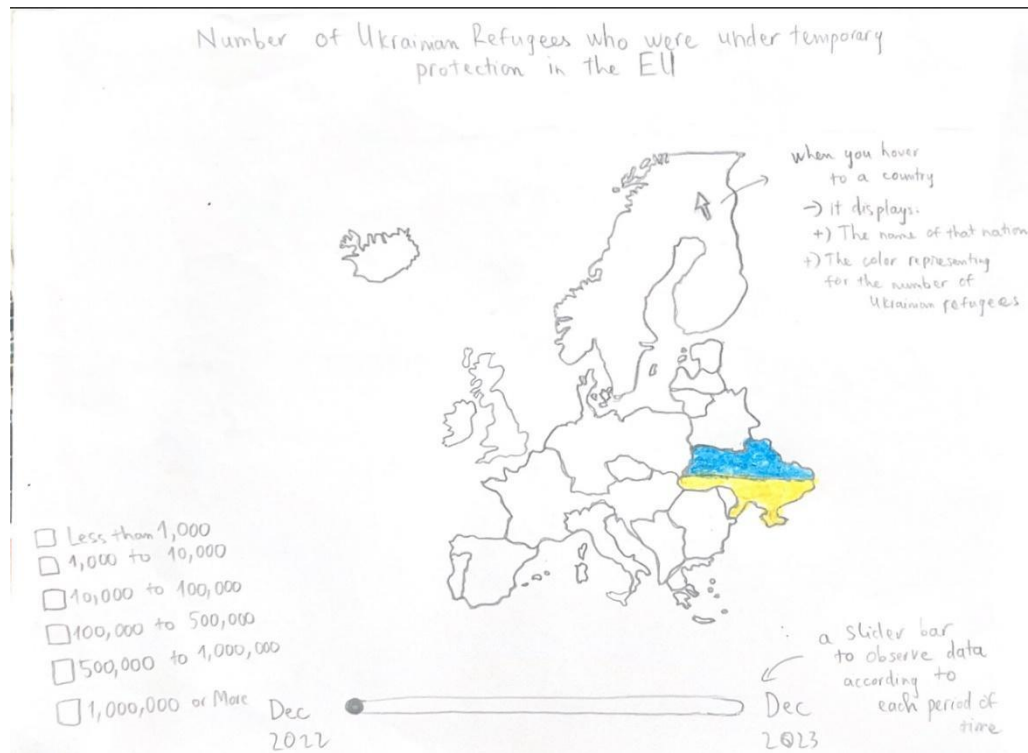 Number of Ukrainian Refugees who were under temporary
protection in the EU
when you hover
to a country
→ it displays.
+) The name of that nation
+) The color representing
for the number of
Ukrainian refugees
Less than 1,000
1,000 to 10,000
10,000 to 100,000
100,000 to 500,000
500,000 to 1,000,000
1,000,000 or More
Dec
2022
Dec
2023
a slider bar
to observe data
according to
each period of
time